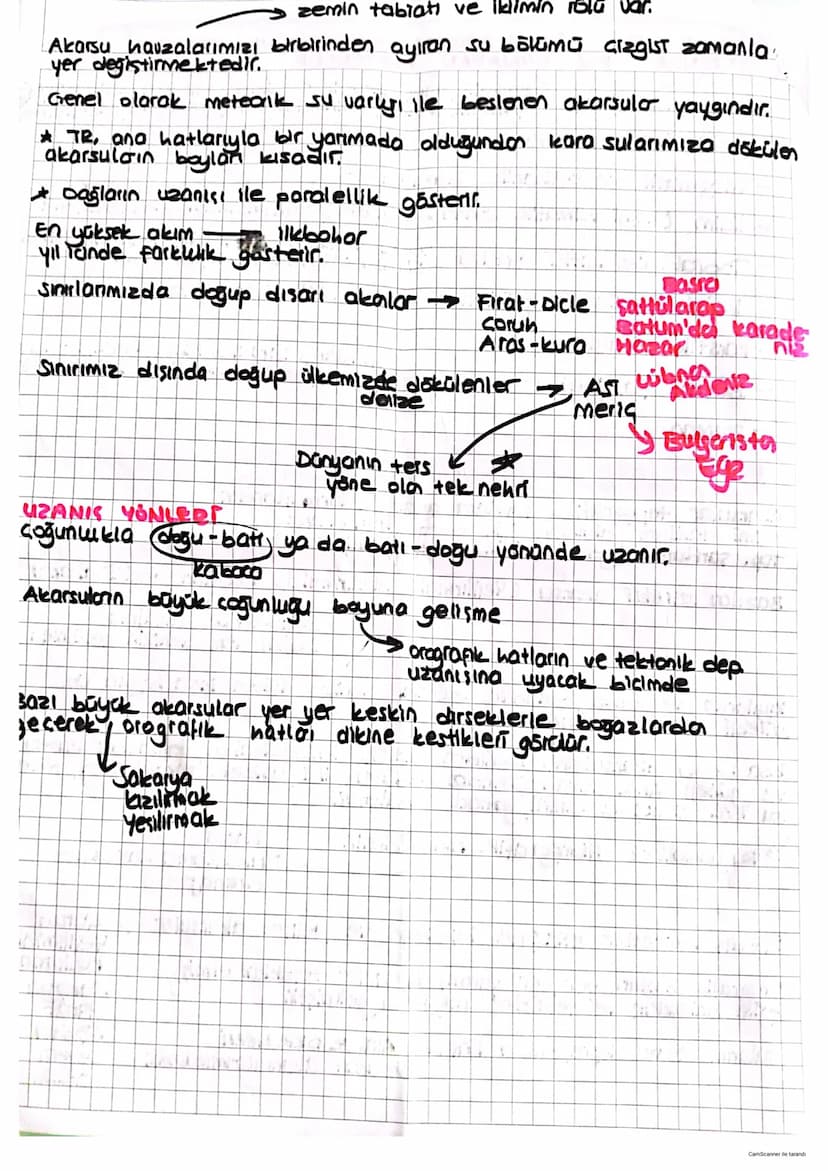 → zemin tabiatı ve iklimin rolü var.
Akarsu havzalarımızı birbirinden ayıran su bölümü çizgisi zamanla
yer değiştirmektedir.
Genel olarak meteorik su varlığı ile beslenen akarsular yaygındır.
* TR, ana hatlarıyla bir yarımada olduğundan kara sularımıza dökülen
akarsuların boyları kısadır.
* Dağların uzanışı ile paralellik gösterir.
En yüksek akım → ilkbahar
yıl içinde farklılık gösterir.
Sınırlarımızda doğup dışarı akanlar → Fırat-Dicle Basra Şattülarap
Çoruh Batum'del Karadeniz
Aras-kura Hazar
Sınırımız dışında doğup ülkemizde dökülenler → ASİ Lübnan Akdeniz
denize
meriç → Bulgaristan Ege
Dünyanın ters *
yöne olan tek nehri
UZANIŞ YÖNLERİ
Çoğunlukla doğu-batı ya da batı-doğu yönünde uzanır.
kabaca
Akarsuların büyük çoğunluğu boyuna gelişme
→ orografik hatların ve tektonik dep
uzanışına uyacak biçimde
Bazı büyük akarsular yer yer keskin dirseklerle boğazlardan
geçerek, orografik hatları dikine kestikleri görülür.
Sakarya
kızılırmak
yeşilırmak
CamScanner ile tarandı